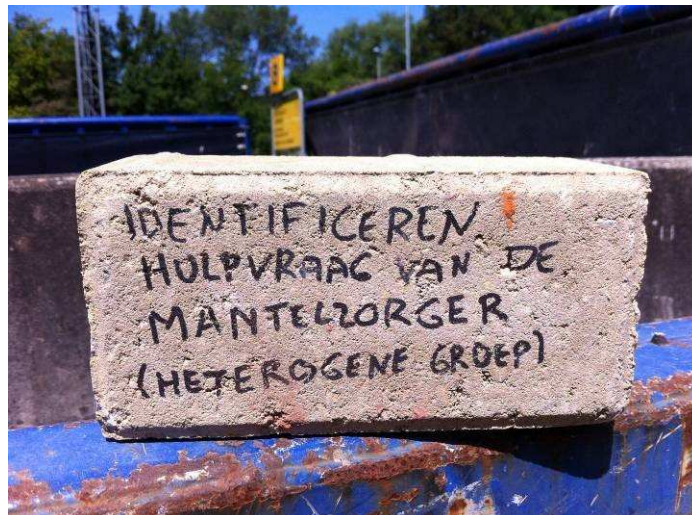 IDENTIFICEREN
HULPVRAAG VAN DE
MANTELZORGER
(HETEROGENE GROEP)